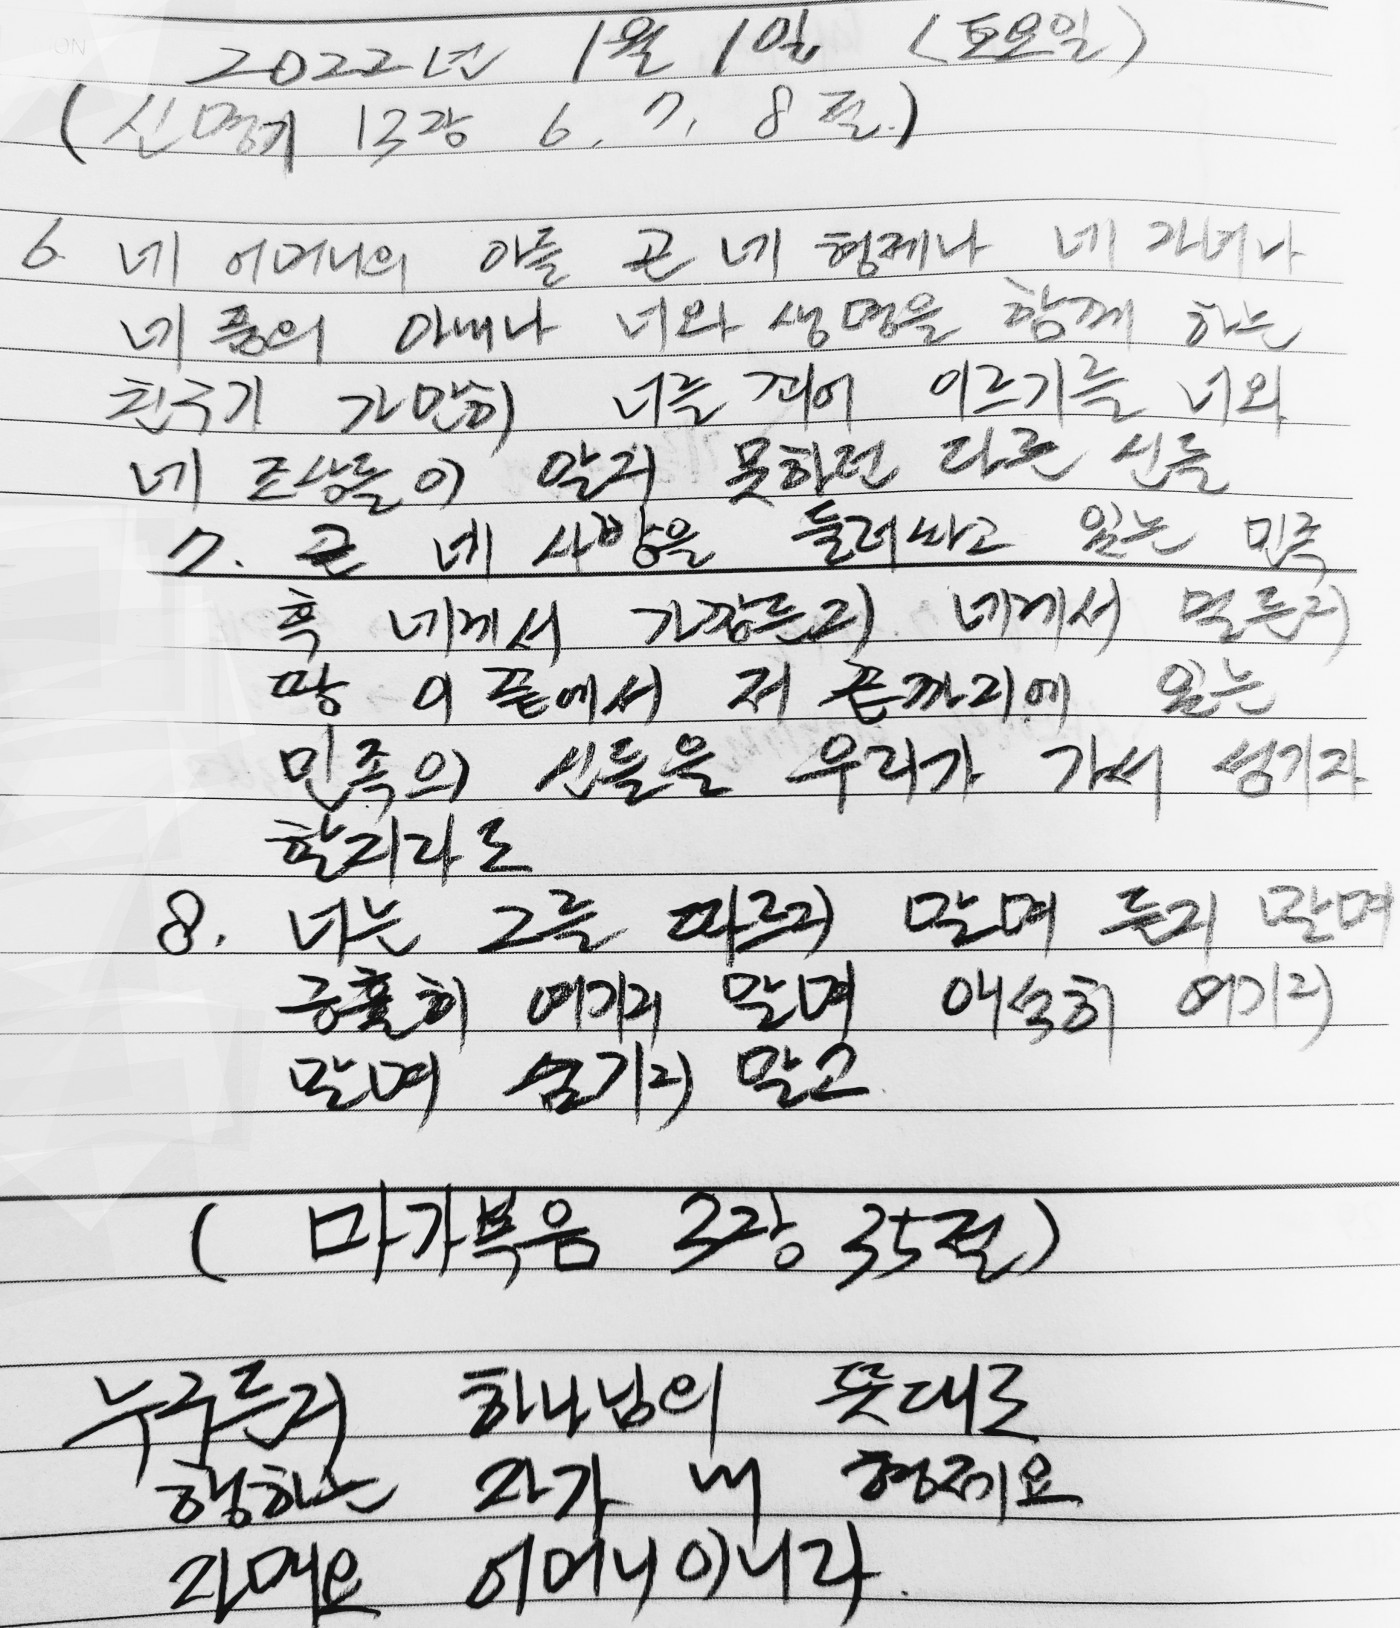 2022년 1월 1일 (토요일)
(신명기 13장 6, 7, 8절.)
6 네 어머니의 아들 곧 네 형제나 네 자녀나
네 품의 아내나 너와 생명을 함께 하는
친구가 가만히 너를 꾀어 이르기를 너와
네 조상들이 알지 못하던 다른 신들
7. 곧 네 사방을 둘러싸고 있는 민족
혹 네게서 가깝든지 네게서 멀든지
땅 이 끝에서 저 끝까지에 있는
민족의 신들을 우리가 가서 섬기자
할지라도
8. 너는 그를 따르지 말며 듣지 말며
긍휼히 여기지 말며 애석히 여기지
말며 숨기지 말고
(마가복음 3장 35절)
누구든지 하나님의 뜻대로
행하는 자가 내 형제요
자매요 어머니이니라.